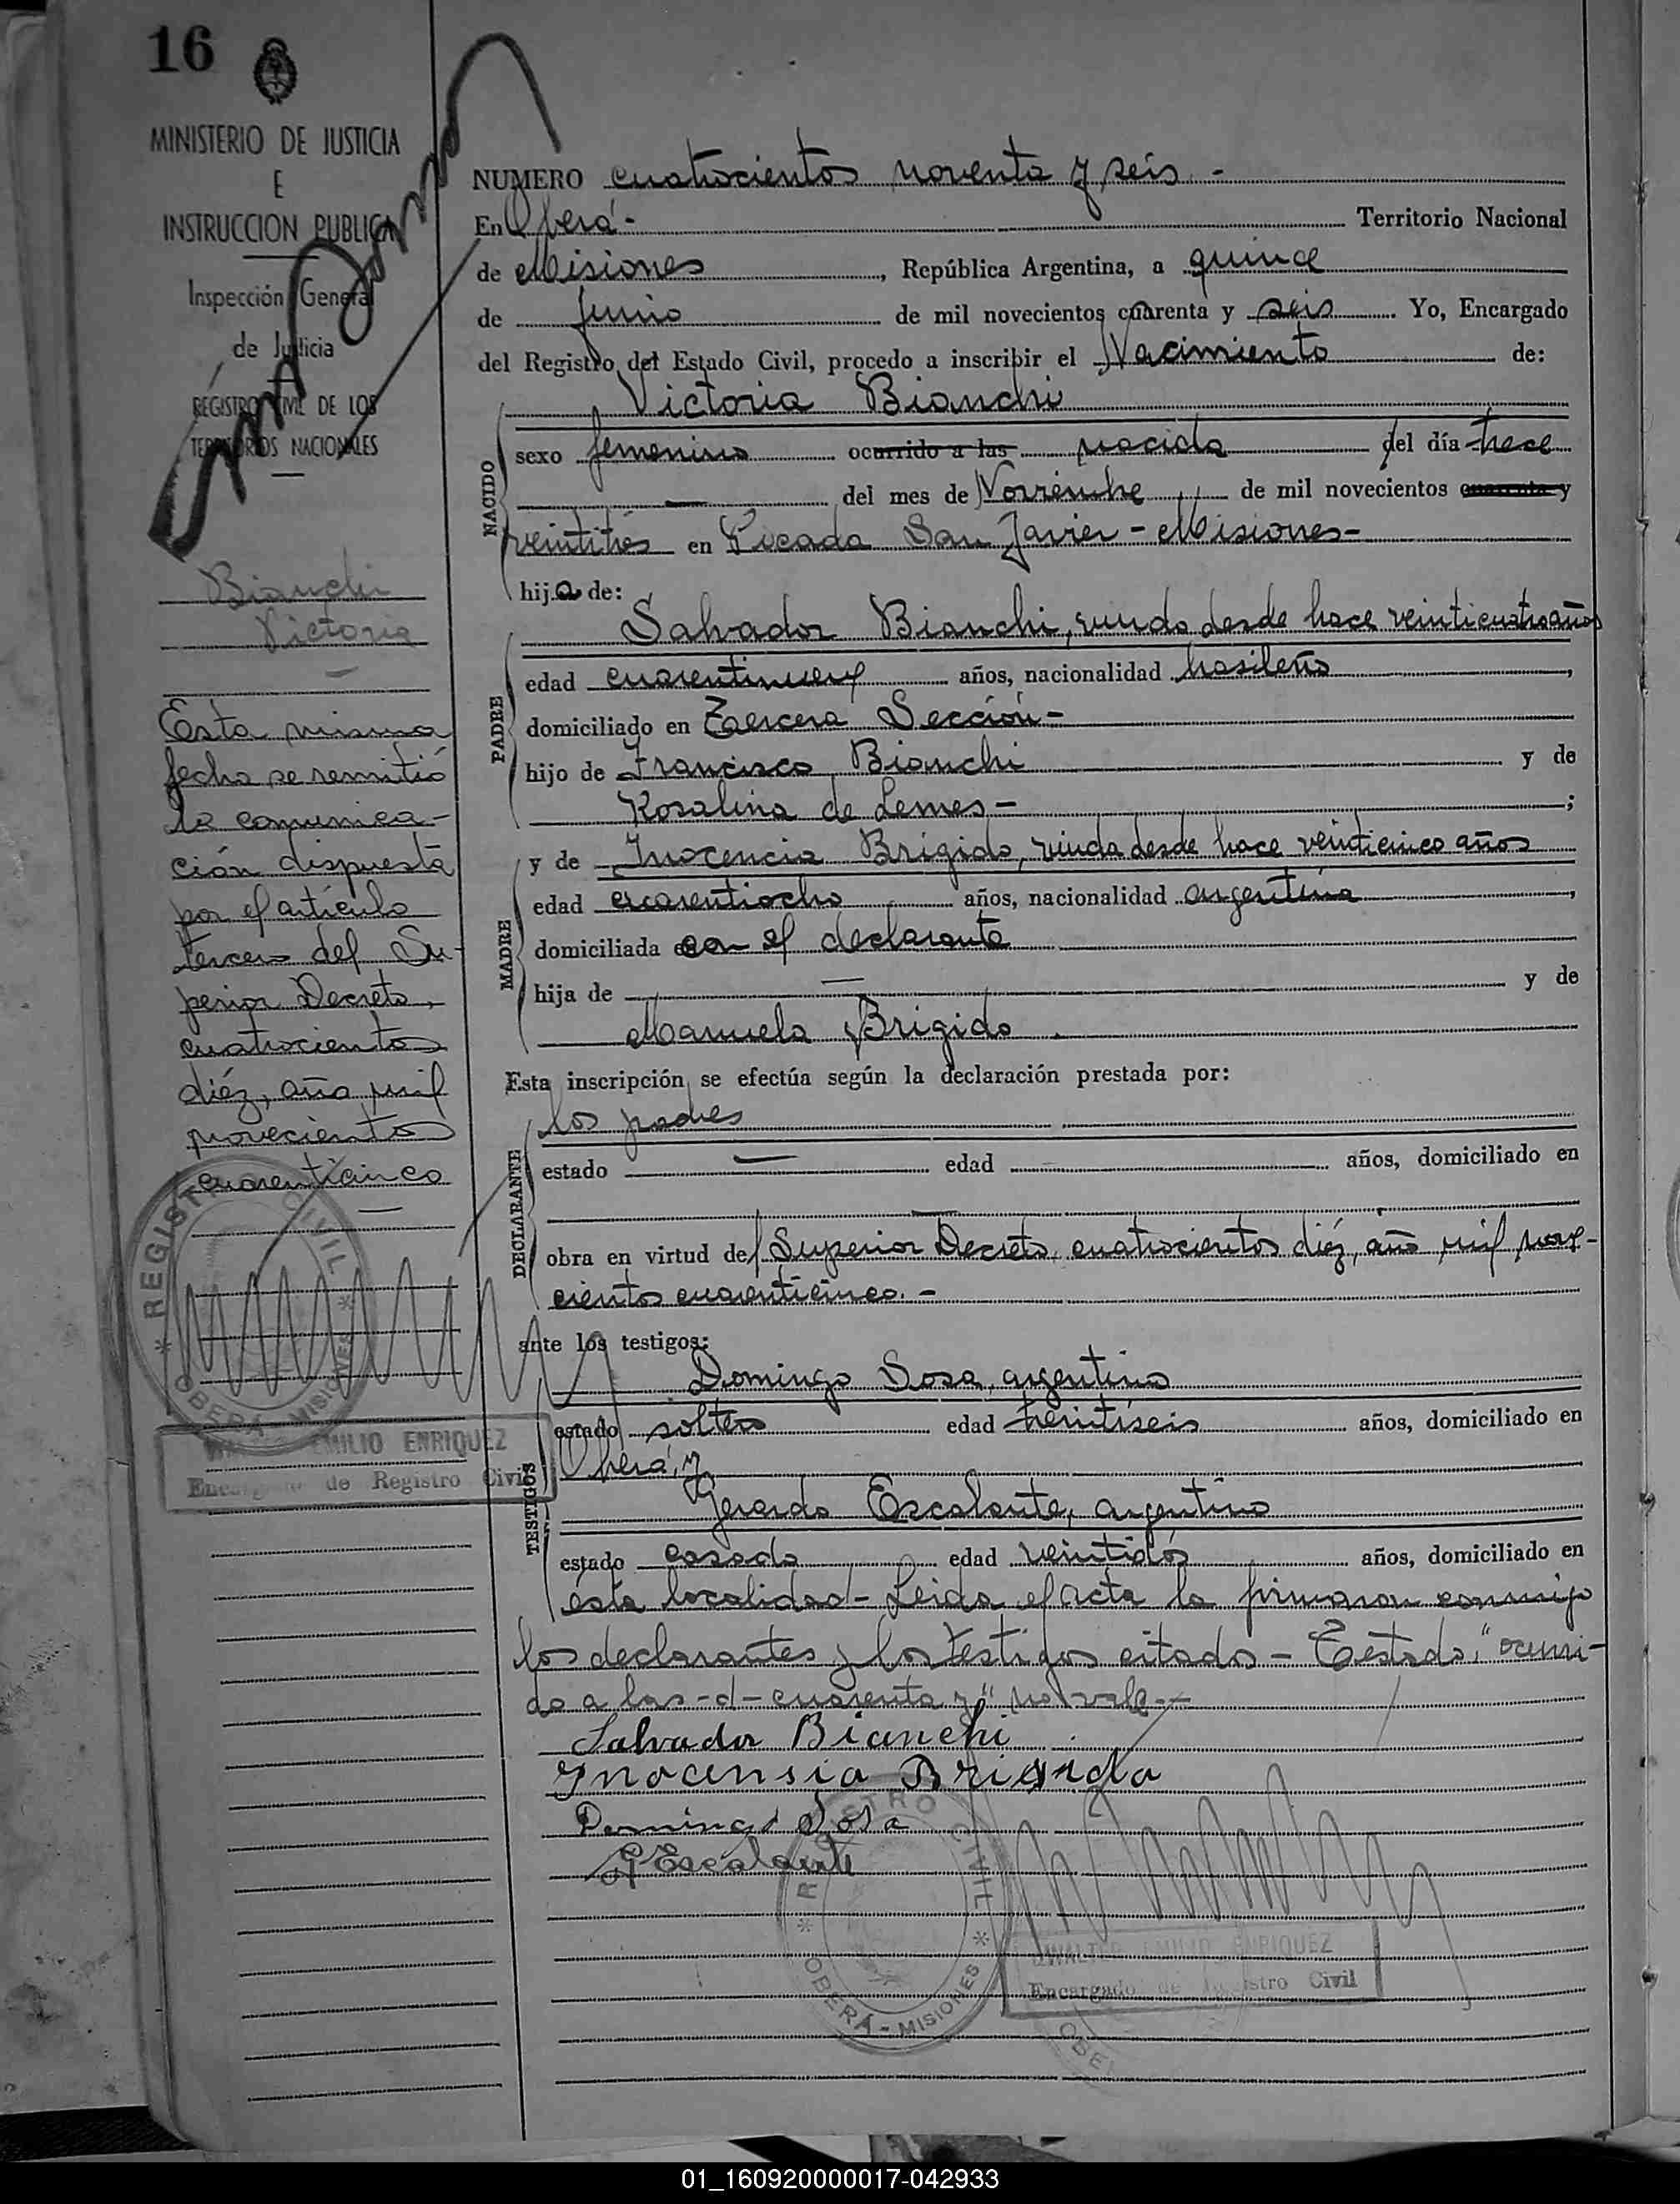 16
MINISTERIO DE JUSTICIA
E
INSTRUCCION PUBLICA
Inspección General
de Justicia
REGISTRO CIVIL DE LOS
TERRITORIOS NACIONALES
Bianchi
Victoria
Esta misma
fecha se remitió
la comunica-
ción dispuesta
por el artículo
tercero del Su-
perior Decreto,
cuatrocientos
diéz, año mil
novecientos
cuarenticinco
REGISTRO CIVIL
OBERÁ - MISIONES
WALTER EMILIO ENRIQUEZ
Encargado de Registro Civil
NUMERO cuatrocientos noventa y seis -
En Oberá - Territorio Nacional
de Misiones, República Argentina, a quince
de Junio de mil novecientos cuarenta y seis Yo, Encargado
del Registro del Estado Civil, procedo a inscribir el Nacimiento de:
Victoria Bianchi
NACIDO
sexo femenino ocurrido a las nacida del día trece
— del mes de Noviembre de mil novecientos cuarenta y
veintitrés en Picada San Javier - Misiones -
hija de:
PADRE
Salvador Bianchi, viudo desde hace veinticuatro años
edad cuarentinueve años, nacionalidad brasileño,
domiciliado en Tercera Sección -
hijo de Francisco Bianchi y de
Rosalina de Lemes - ;
MADRE
y de Inocencia Brigido, viuda desde hace veinticinco años
edad cuarentiocho años, nacionalidad argentina,
domiciliada con el declarante
hija de — y de
Manuela Brigido
Esta inscripción se efectúa según la declaración prestada por:
DECLARANTE
los padres
estado — edad años, domiciliado en
—
obra en virtud del Superior Decreto, cuatrocientos diéz, año mil nove-
cientos cuarenticinco. -
ante los testigos:
TESTIGOS
Domingo Sosa, argentino
estado soltero edad treintiseis años, domiciliado en
Oberá, y
Gerardo Escalante, argentino
estado casado edad veintidós años, domiciliado en
ésta localidad - Leida el acta la firmaron conmigo
los declarantes y los testigos citados - Testado: "ocurri-
do a las -d- cuarenta y" no vale -
Salvador Bianchi
Ynocensia Brigido
Domingo Sosa
G Escalante
REGISTRO CIVIL
OBERÁ - MISIONES
WALTER EMILIO ENRIQUEZ
Encargado de Registro Civil
OBE
01_160920000017-042933